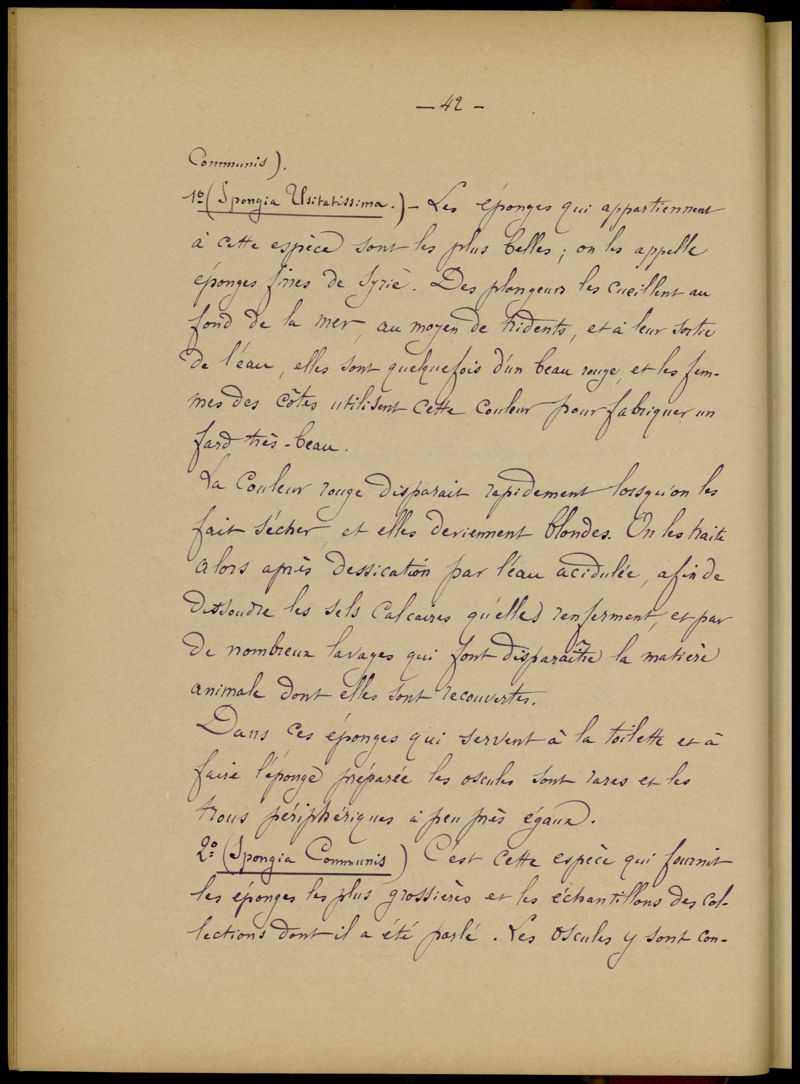 — 42 —
Communis).
1º (Spongia Usitatissima.) — Les éponges qui appartiennent
à cette espèce sont les plus belles ; on les appelle
éponges fines de Syrie. Des plongeurs les cueillent au
fond de la mer, au moyen de tridents, et à leur sortie
de l'eau, elles sont quelquefois d'un beau rouge, et les fem-
mes des côtes utilisent cette couleur pour fabriquer un
fard très-beau.
La couleur rouge disparait rapidement lorsqu'on les
fait sécher, et elles deviennent blondes. On les traite
alors après dessication par l'eau acidulée, afin de
dissoudre les sels calcaires qu'elles renferment, et par
de nombreux lavages qui font disparaître la matière
animale dont elles sont recouvertes.
Dans ces éponges qui servent à la toilette et à
faire l'éponge préparée les oscules sont rares et les
trous périphériques à peu près égaux.
2º (Spongia Communis) C'est cette espèce qui fournit
les éponges les plus grossières et les échantillons des col-
lections dont il a été parlé. Les oscules y sont con-